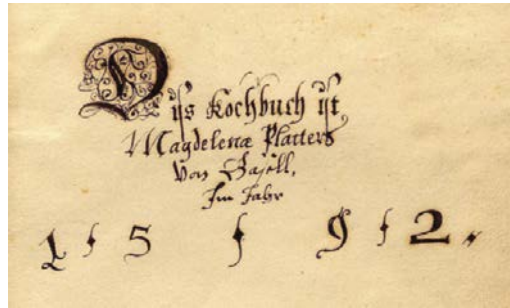 Dijs Kochbuch ist
Magdelenæ Platters
Von Basell,
Im Jahr
1 5 9 2.